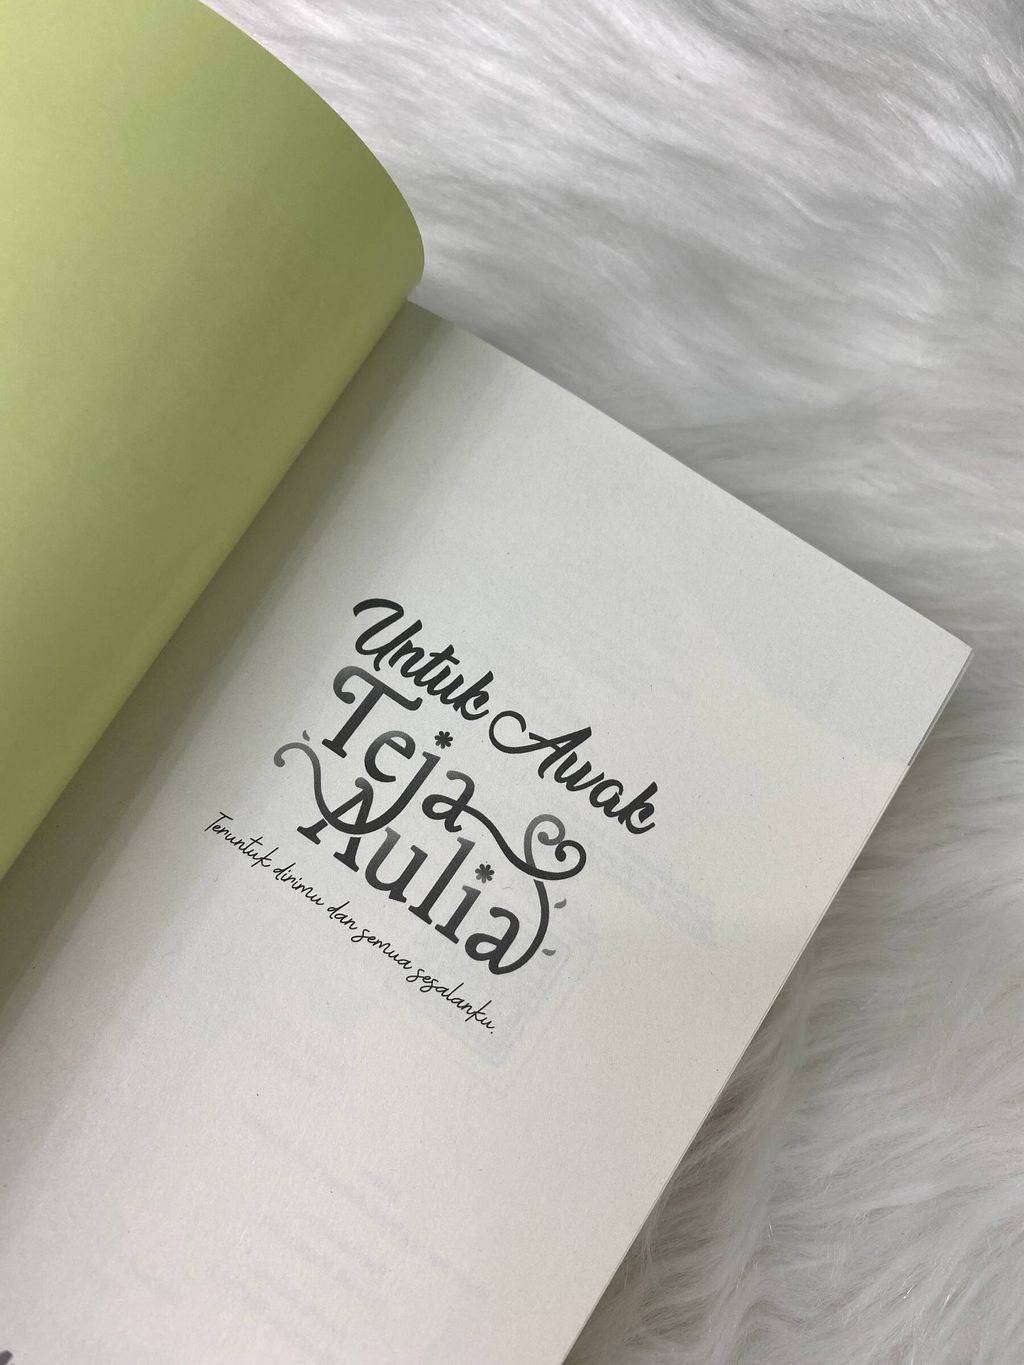 Untuk Awak
Teja
Aulia
Teruntuk dirimu dan semua sesalanku.